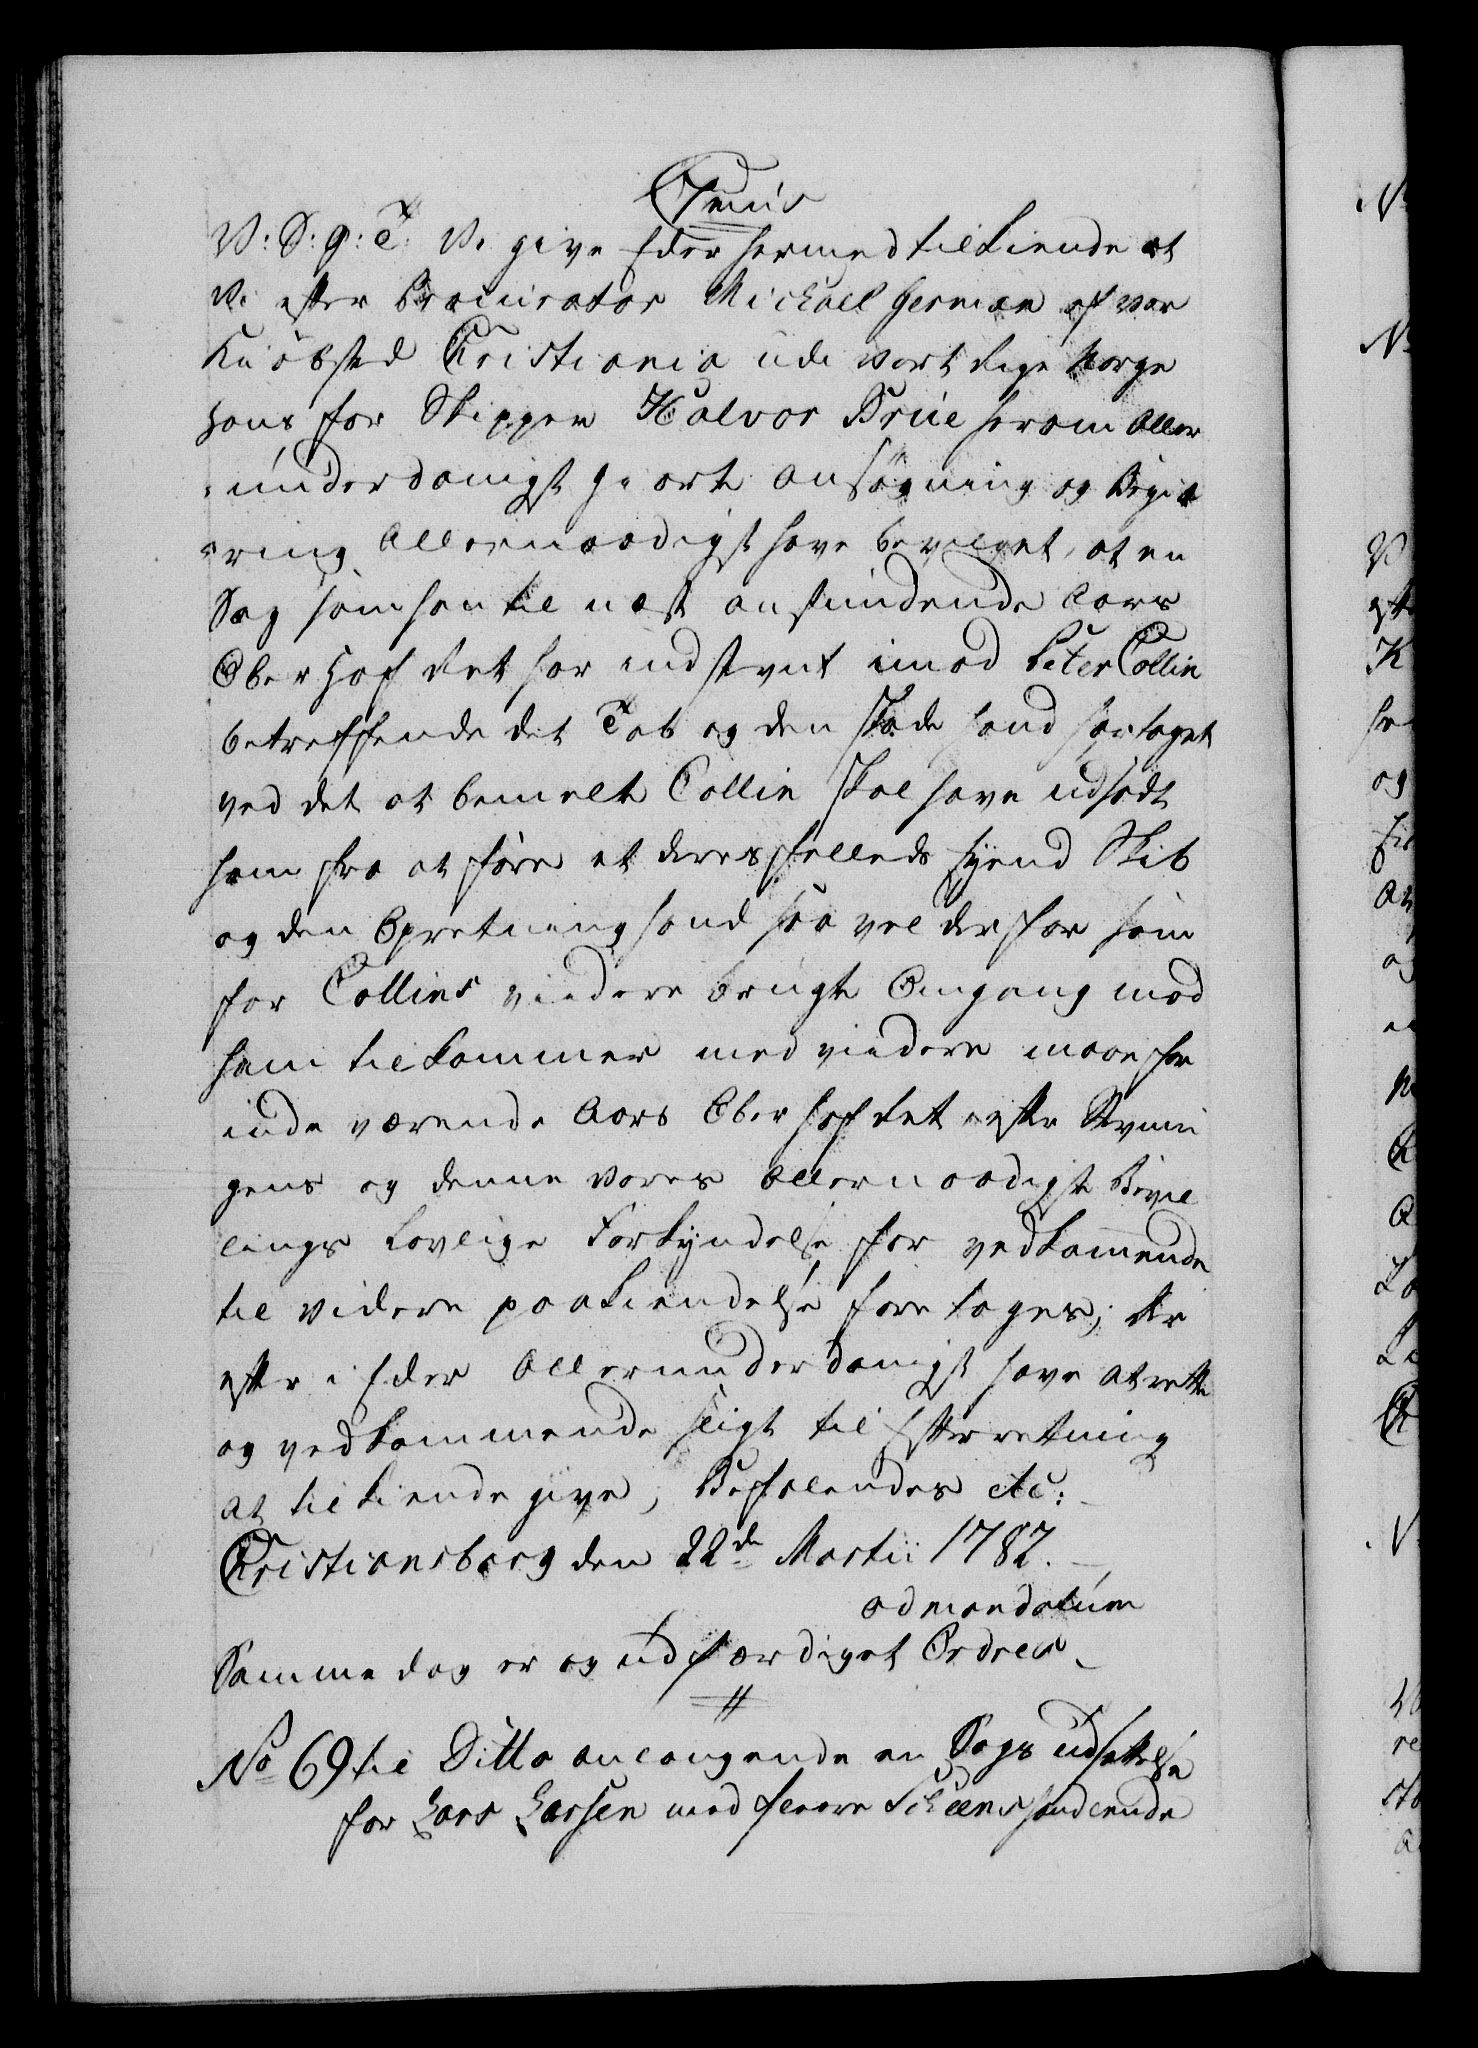 V: S: G: T: Vi give Eder hermed tilkiende at
Vi efter Procurator Michael German af vor
Kiöbsted Christiania udi vort Rige Norge
hans for Skipper Halvor Brüe herom Aller
underdanigst giorte Ansøgning og Begie
ring Allernaadigst have bevilget, at en
Sag som han til næst anstundende Aars
Ober Hof Ret har indstevnt imod Peter Collin
betreffende det Tab og den Skade hand har taget
ved det at bemelte Collin skal have udsadt
ham fra at føre et deres felleds Eyend Skib
og den Opretning hand saa vel derfor som
for Collins viidere brugte Omgang mod
ham tilkommer med viidere maae for
inde værende Aars Ober Hof Ret efter Stevnin
gens og denne vores Allernaadigste Bevil
lings Lovlige Forkyndelse for vedkommende
til videre paakiendelse foretages; Der
efter i Eder Allerunderdanigst have at rette
og vedkommende sligt til Efterretning
at tilkiende give, Befalendes etc:
Christiansborg den 22de Martii 1782.
ad mandatum
Samme dag er og udfærdiget Ordren.
No 69 til Ditto anlangende en Sags udsættelse
for Lars Larsen med fleere Scheens henhørende